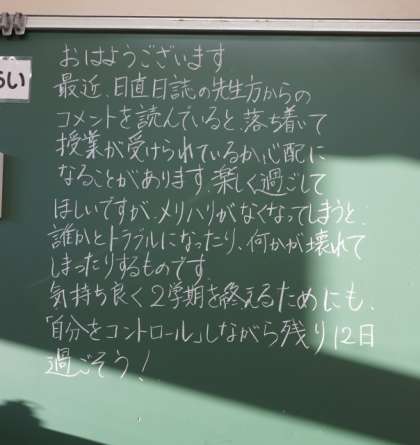 らい
おはようございます
最近、日直日誌の先生方からの
コメントを読んでいると、落ち着いて
授業が受けられているか心配に
なることがあります。楽しく過ごして
ほしいですが、メリハリがなくなってしまうと、
誰かとトラブルになったり、何かが壊れて
しまったりするものです。
気持ち良く2学期を終えるためにも、
「自分をコントロール」しながら残り12日
過ごそう!